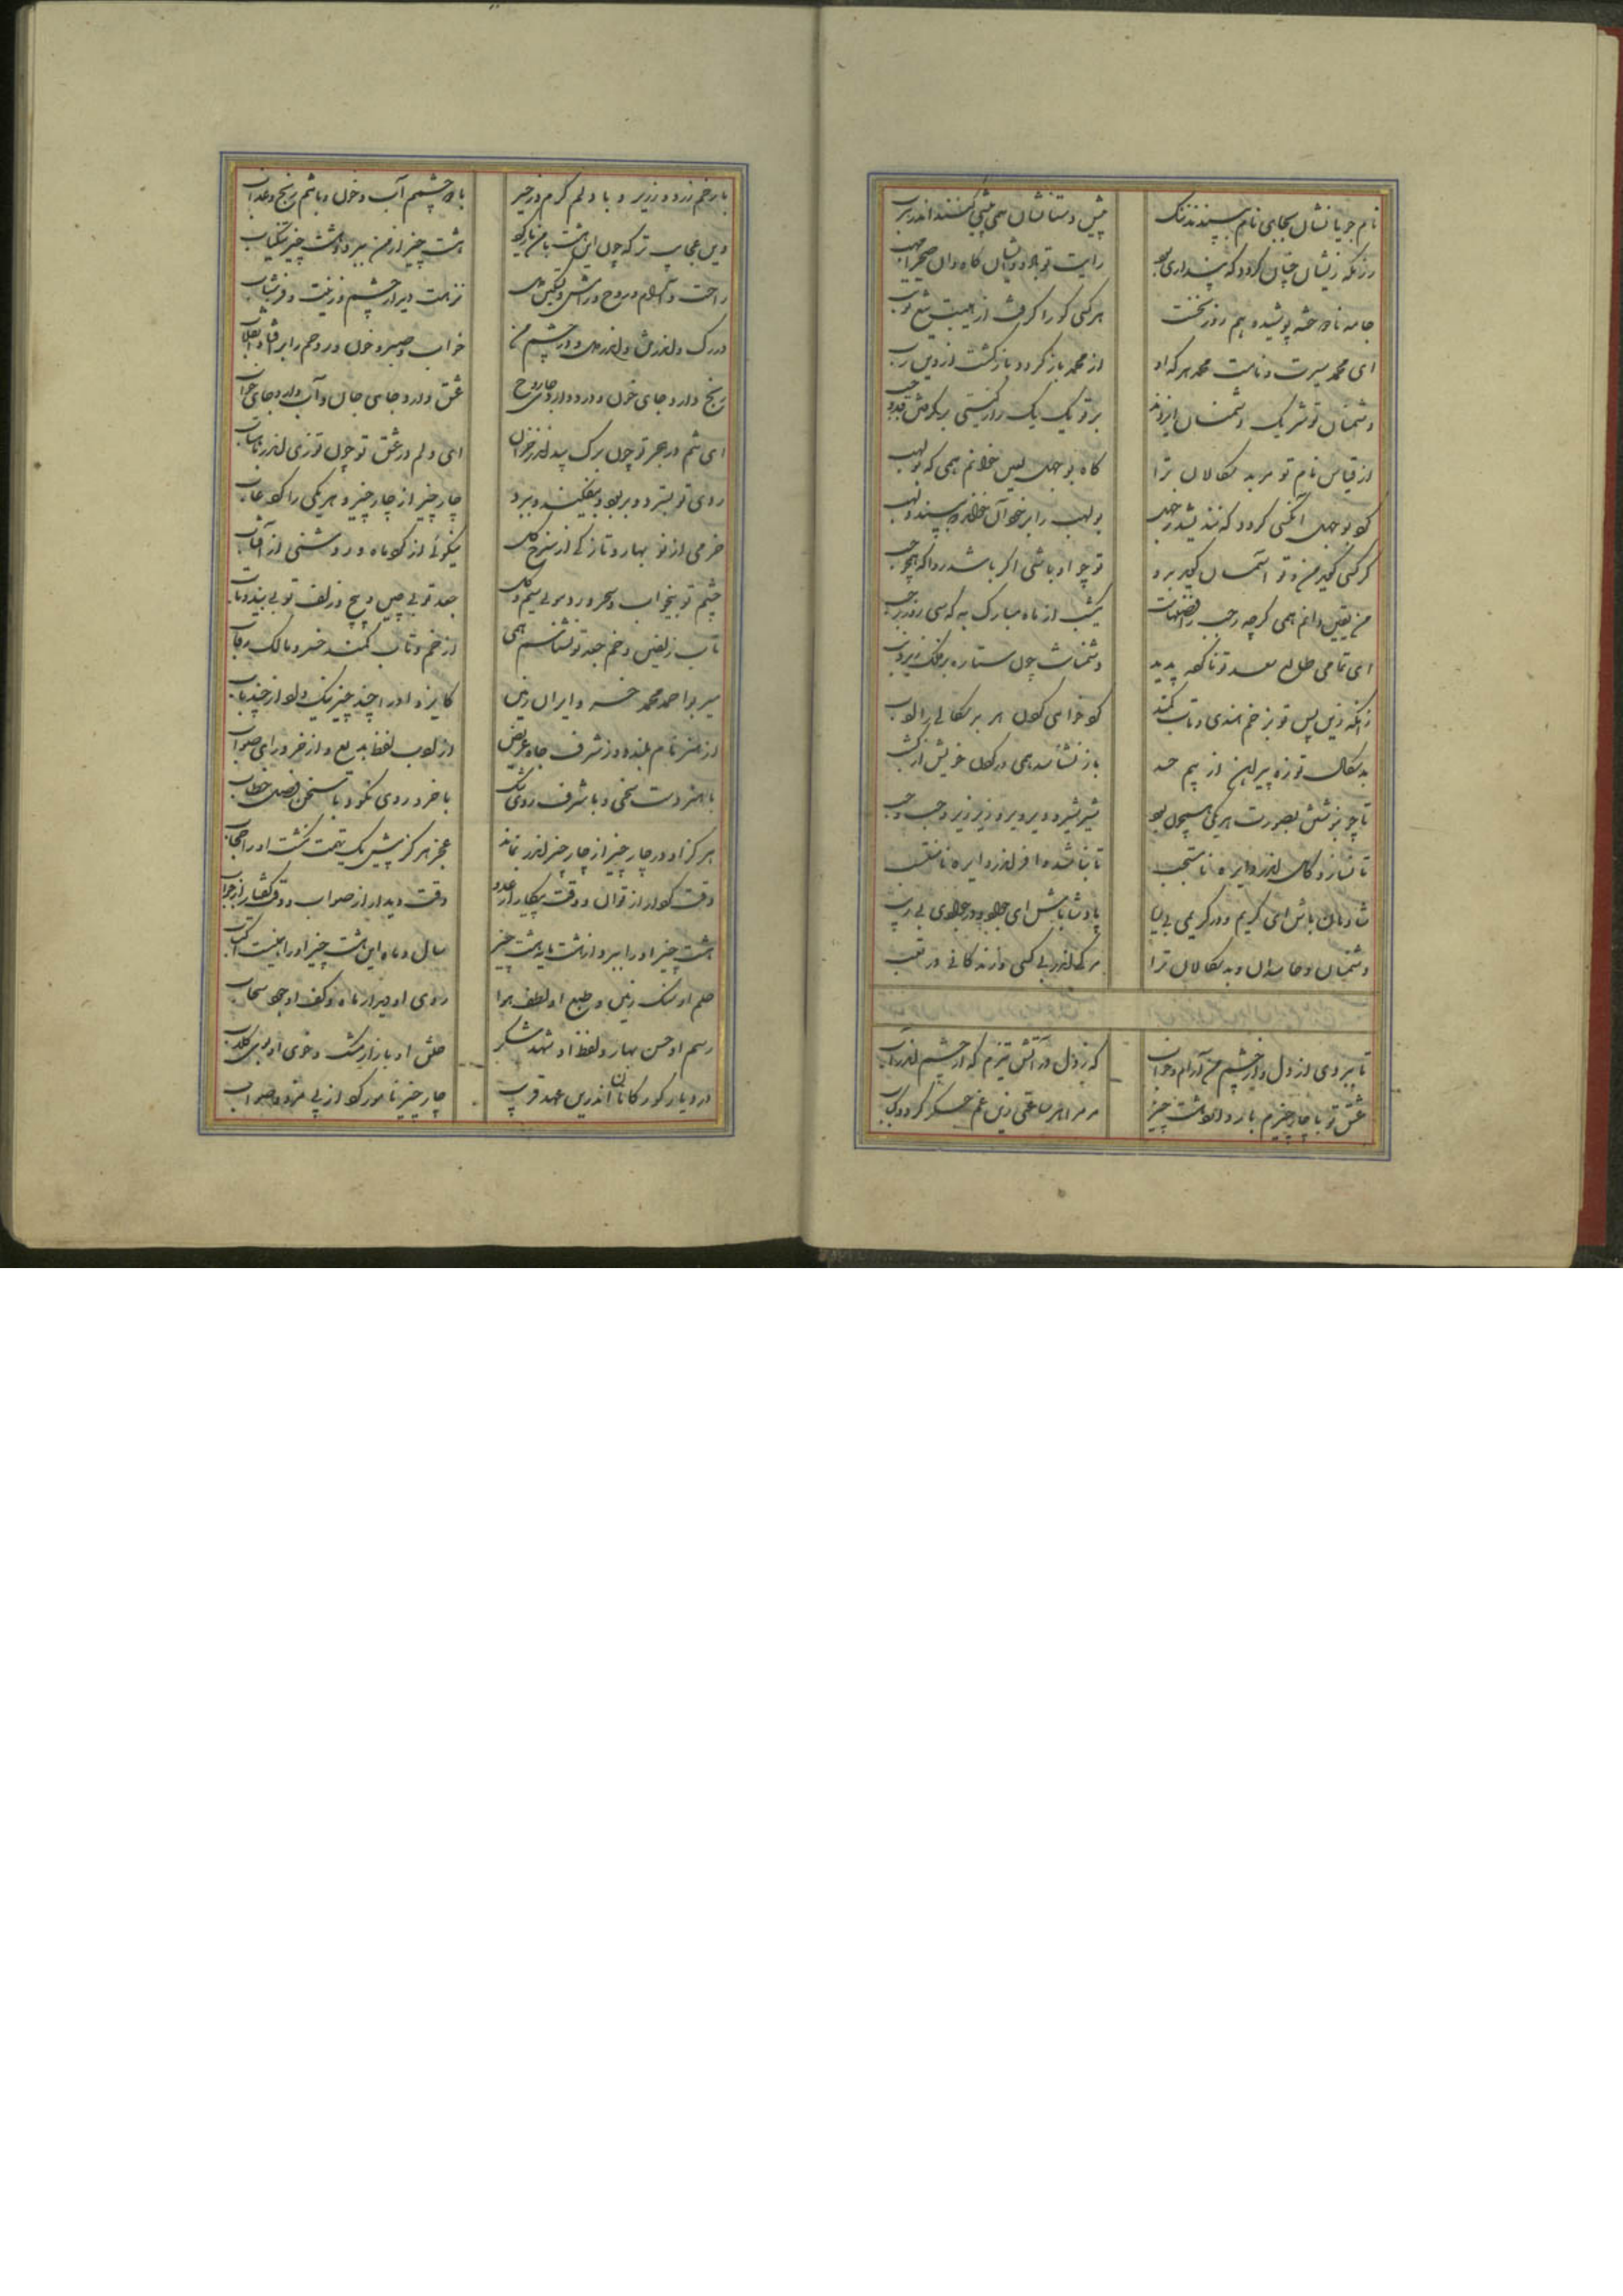 نام جویانشان بجای نام بپسندند ننگ
پیش دستانشان همی پیشی کنند اندر هرب
زانکه زیشان چنان گردد که پنداری بود
رایت تو باد و ایشان کاه و ان صحرا مهب
جامه نادوخته پوشیده هم روز نخست
هر کسی کو را گرفت از هیبت تیغ تو تب
ای محمد سیرت و نامت محمد هر که او
از محمد بازگردد بازگشت از دین رب
دشمنان تو شریک دشمنان ایزدند
بر تو یک یک را
از قیاس نام تو مر بدسگالان ترا
گاه بوجهل لعین خوانم همی گه بولهب
کو بوجهل آنکسی گردد که نندیشد ز جهل
بولهب را بر خود آن خواند که بپسندد لهب
گر کسی گوید من و تو آسمان گوید برو
تو چو او باشی اگر باشد روا که همچو حب
من یقین دانم همی گرچه رجب را فضلهاست
یکشب از ماه مبارک به که سی روز از رجب
ای تمامی طالع سعد تو ناکرده پدید
دشمنانت چون ستاره بر فلک زیر ذنب
زانکه زین پس تو بزخم هندی و تاب کمند
گو خواهی کردن هر بدسگالی را ادب
بدسگال تو زه پیراهن از بیم حسد
باز نشناسد همی در گردن خویش از کنب
تا چو بنویسی بصورت هر یکی همچون بود
شیر شیر و دیر دیر و زیر زیر و حب و حب
تا نیارد گاه اندر دایره نامنتجب
تا نباشد اندر دایره نامنقلب
شادمان باش ای کریم و در کریمی بی ریا
پادشا باش ای جواد و در جوادی بی ریب
دشمنان و حاسدان و بدسگالان ترا
مرگ اندر بی کسی و زندگانی در تعب
تا ببردی از دل و از چشم من آرام و خواب
گه ز دل در آتش تیزم گه از چشم اندر آب
عشق تو با چار چیزم یار دارد هشت چیز
مر مرا هر ساعتی زین غم جگر گردد کباب
با رخم زر و زریر و با دلم گرم و زحیر
با دو چشمم آب و خون و با تنم رنج و عذاب
وین عجایب تر که چون این هشت با من یار کرد
هشت چیز از من ببرد و هشت چیز تنگیاب
راحت و آرام و روح و رامش و تسکین دل
نزهت و دیدار چشم و زینت و فر شباب
ادرک و
خواب و صبر و خون و روحم را
رنج دارد جای خون و درد دارد جای روح
عشق دارد جای جان و آب دارد جای خواب
ای تنم در هجر تو چون برگ بید اندر خزان
ای دلم در عشق تو چون توزی اندر ماهتاب
روی تو بسترد و بربود و بیفکند و ببرد
چار چیز از چار چیز و هر یکی را کرد غاب
خرمی از نوبهار و تازگی از سرخ گل
نیکوئی از گرد ماه و روشنی از آفتاب
چشم تو بیخواب و سحر و روی بی سیم و گل
جعد تو بی چین و پیچ و زلف تو بی بند و تاب
تاب زلفین و خم جعد تو نشناسم همی
از خم و تاب کمند خسرو مالک رقاب
میر بو احمد محمد خسرو ایران زمین
کایزد او را چند چیز نیک داد از چند باب
از هنر نام بلند و از شرف جاه عریض
از ادب لفظ بدیع و از خرد رای صواب
با هنر دست سخی و با شرف روی نکو
با خرد روی نکو و با سخن فصل خطاب
هرگز او در چار چیز از چار چیز اندر نماند
عجز هرگز پیش یک نهمت نگشت او را حجاب
وقت گردار از توان و وقت پیکار از عدو
وقت دیدار از صواب و وقت گفتار از جواب
هشت چیز او را ببرد از هشت مایه هشت چیز
سال و ماه این هشت چیز او را همینست اکتساب
حلم او سنگ زمین و طبع او لطف هوا
روی او دیدار ماه و کف او جود سحاب
رسم او حسن بهار و لفظ او شهد شکر
خلق او بازار مشک و خوی او بوی گلاب
در دیار گورکانان اندرین عهد قریب
چار چیز نامور کرد از پی مزد و صواب